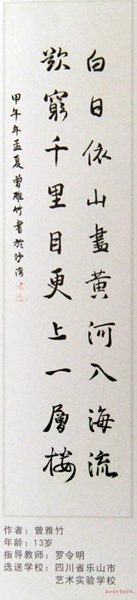 白日依山盡黄河入海流
欲窮千里目更上一層楼
甲午年孟夏曾雅竹書於沙湾
作者：曾雅竹
年龄：13岁
指导教师：罗令明
选送学校：四川省乐山市
艺术实验学校